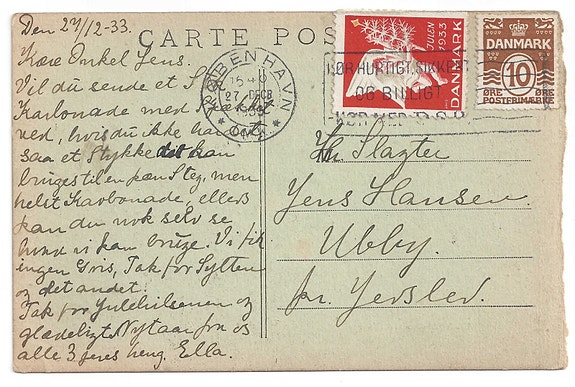 Den 27/12-33.
CARTE POS
Kære Onkel Jens.
Vil du sende et S
Karbonade med
ned, hvis du ikke har
saa et Stykke det kan
bruges til en pæn Steg, men
helst Karbonade, ellers
kan du nok selv se
hvad vi kan bruge. Vi fik
ingen Gris, Tak for Sylten
og det andet.
Tak for Julehilsenen og
glædeligt Nytaar fra os
alle 3 jeres heng. Ella.
KØBENHAVN
27 DECB
1933
OMK.
KØR HURTIGT, SIKKERT
OG BILLIGT
KØR MED DSB
JULEN 1933
DANMARK
DANMARK
10
ØRE ØRE
POSTFRIMÆRKE
Hr. Slagter
Jens Hansen.
Ubby.
pr. Jerslev.